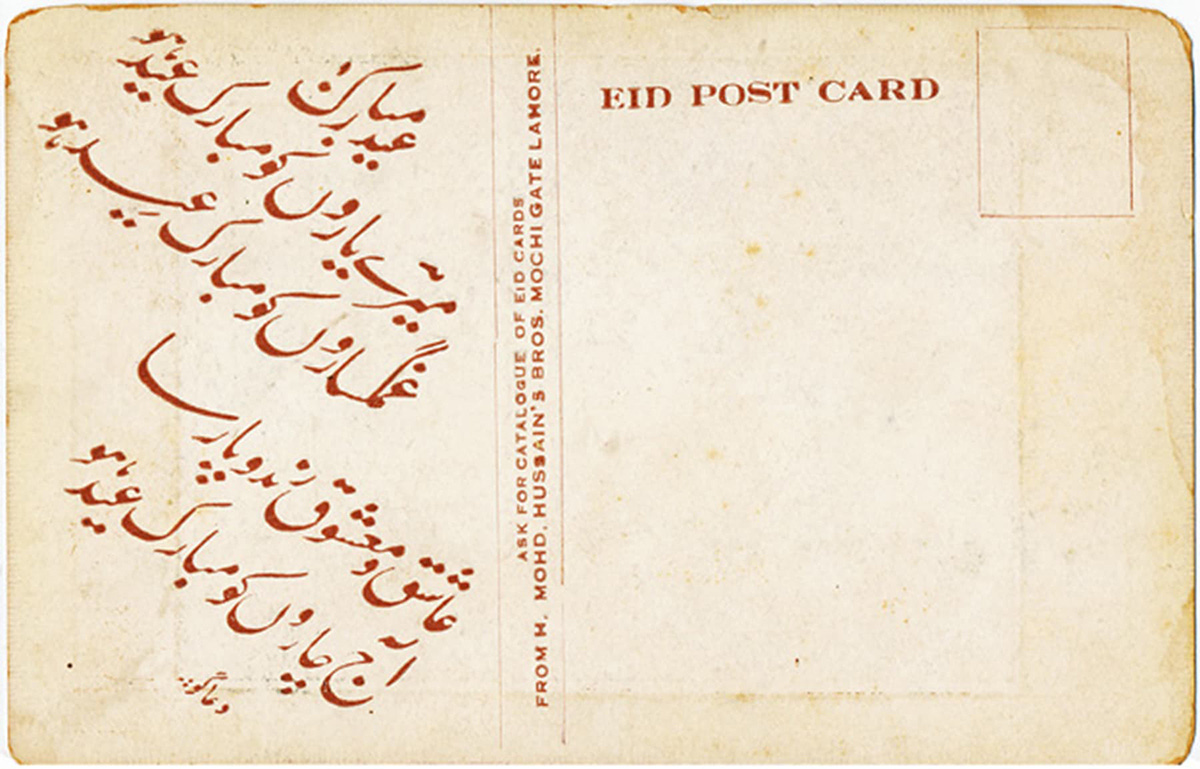 عید مبارک
میرے یاروں کو مبارک عید ہو
غمگساروں کو مبارک عید ہو
عاشق و معشوق رند و پارسا
آج چاروں کو مبارک عید ہو
دعاگو
ASK FOR CATALOGUE OF EID CARDS
FROM H. MOHD. HUSSAIN'S BROS. MOCHI GATE LAHORE.
EID POST CARD